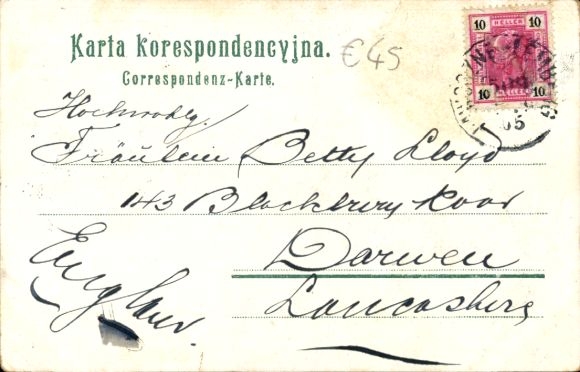 Karta korespondencyjna.
Correspondenz-Karte.
€45
10 HELLER 10
10 HELLER 10
05
Hochwohlg.
Fräulein Betty Lloyd
143 Blackbury Roar
Darwen
Lancashire
England.